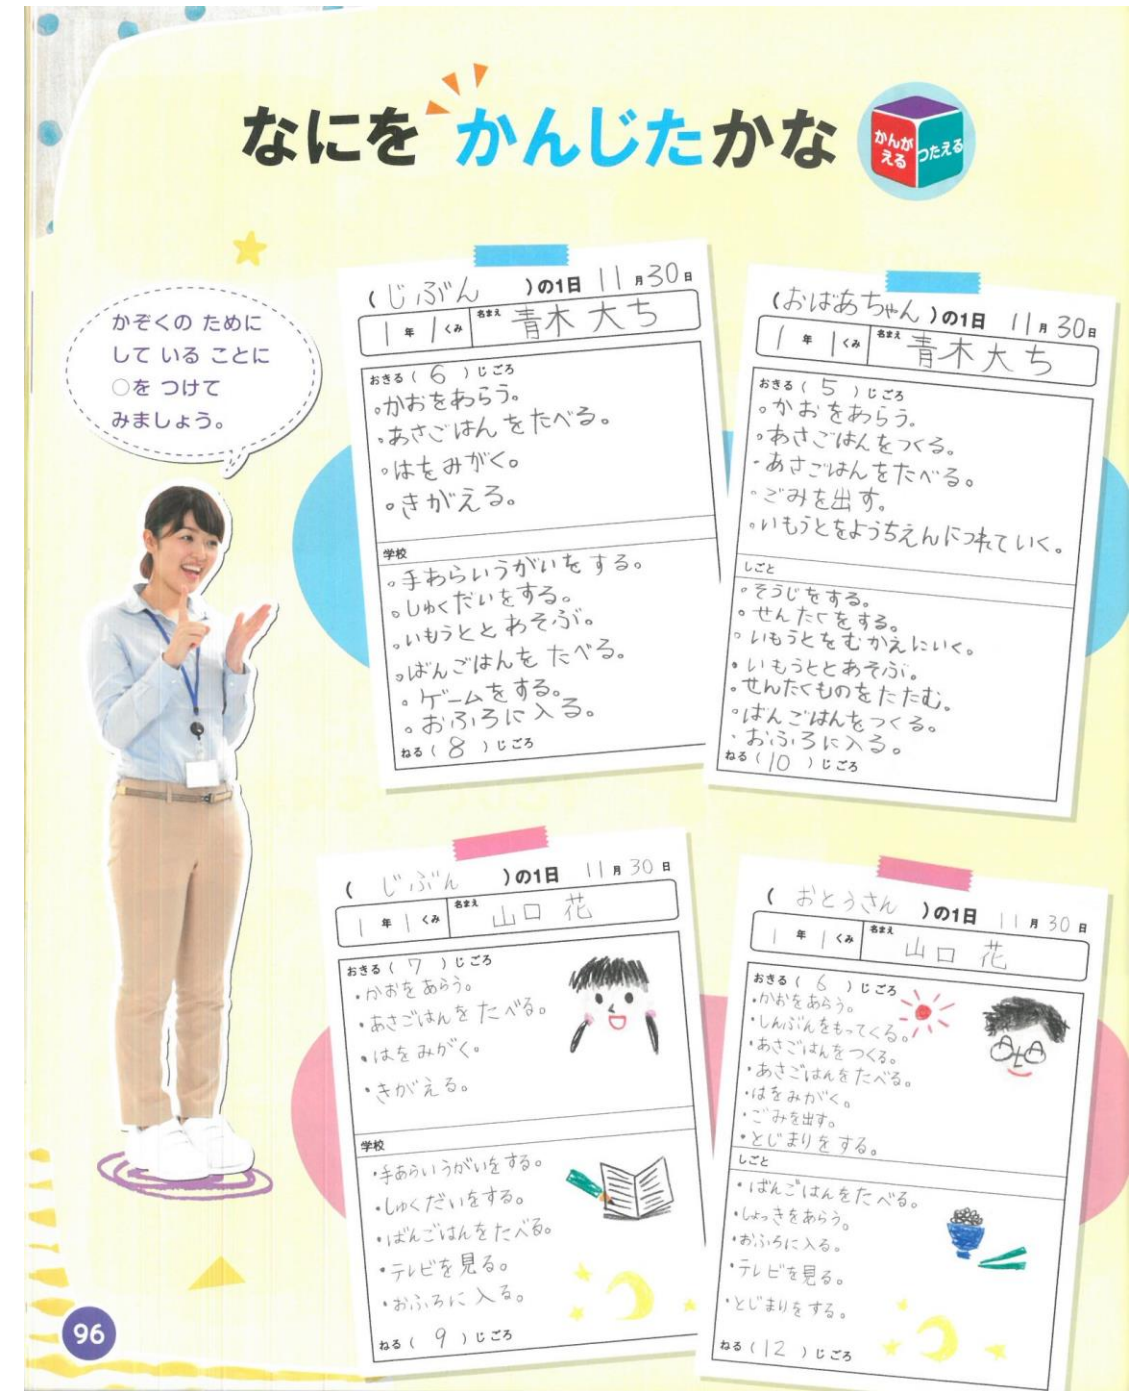 なにを かんじたかな
かんが
える
つたえる
かぞくの ために
して いる ことに
○を つけて
みましょう。
( じぶん )の1日 11月30日
1年1くみ 名まえ 青木大ち
おきる( 6 )じごろ
。かおをあらう。
。あさごはんをたべる。
。はをみがく。
。きがえる。
学校
。手わらいうがいをする。
。しゅくだいをする。
。いもうととあそぶ。
。ばんごはんをたべる。
。ゲームをする。
。おふろに入る。
ねる( 8 )じごろ
(おばあちゃん)の1日 11月30日
1年1くみ 名まえ 青木大ち
おきる( 5 )じごろ
。かおをあらう。
。あさごはんをつくる。
・あさごはんをたべる。
・ごみを出す。
。いもうとをようちえんにつれていく。
しごと
。そうじをする。
。せんたくをする。
。いもうとをむかえにいく。
・いもうととあそぶ。
・せんたくものをたたむ。
・ばんごはんをつくる。
・おふろに入る。
ねる( 10 )じごろ
( じぶん )の1日 11月30日
1年1くみ 名まえ 山口花
おきる( 7 )じごろ
・かおをあらう。
・あさごはんをたべる。
・はをみがく。
・きがえる。
学校
・手あらいうがいをする。
・しゅくだいをする。
・ばんごはんをたべる。
・テレビを見る。
・おふろに入る。
ねる( 9 )じごろ
( おとうさん )の1日 11月30日
1年1くみ 名まえ 山口花
おきる( 6 )じごろ
・かおをあらう。
・しんぶんをもってくる。
・あさごはんをつくる。
・あさごはんをたべる。
・はをみがく。
・ごみを出す。
・とじまりをする。
しごと
・ばんごはんをたべる。
・しょっきをあらう。
・おふろに入る。
・テレビを見る。
・とじまりをする。
ねる( 12 )じごろ
96